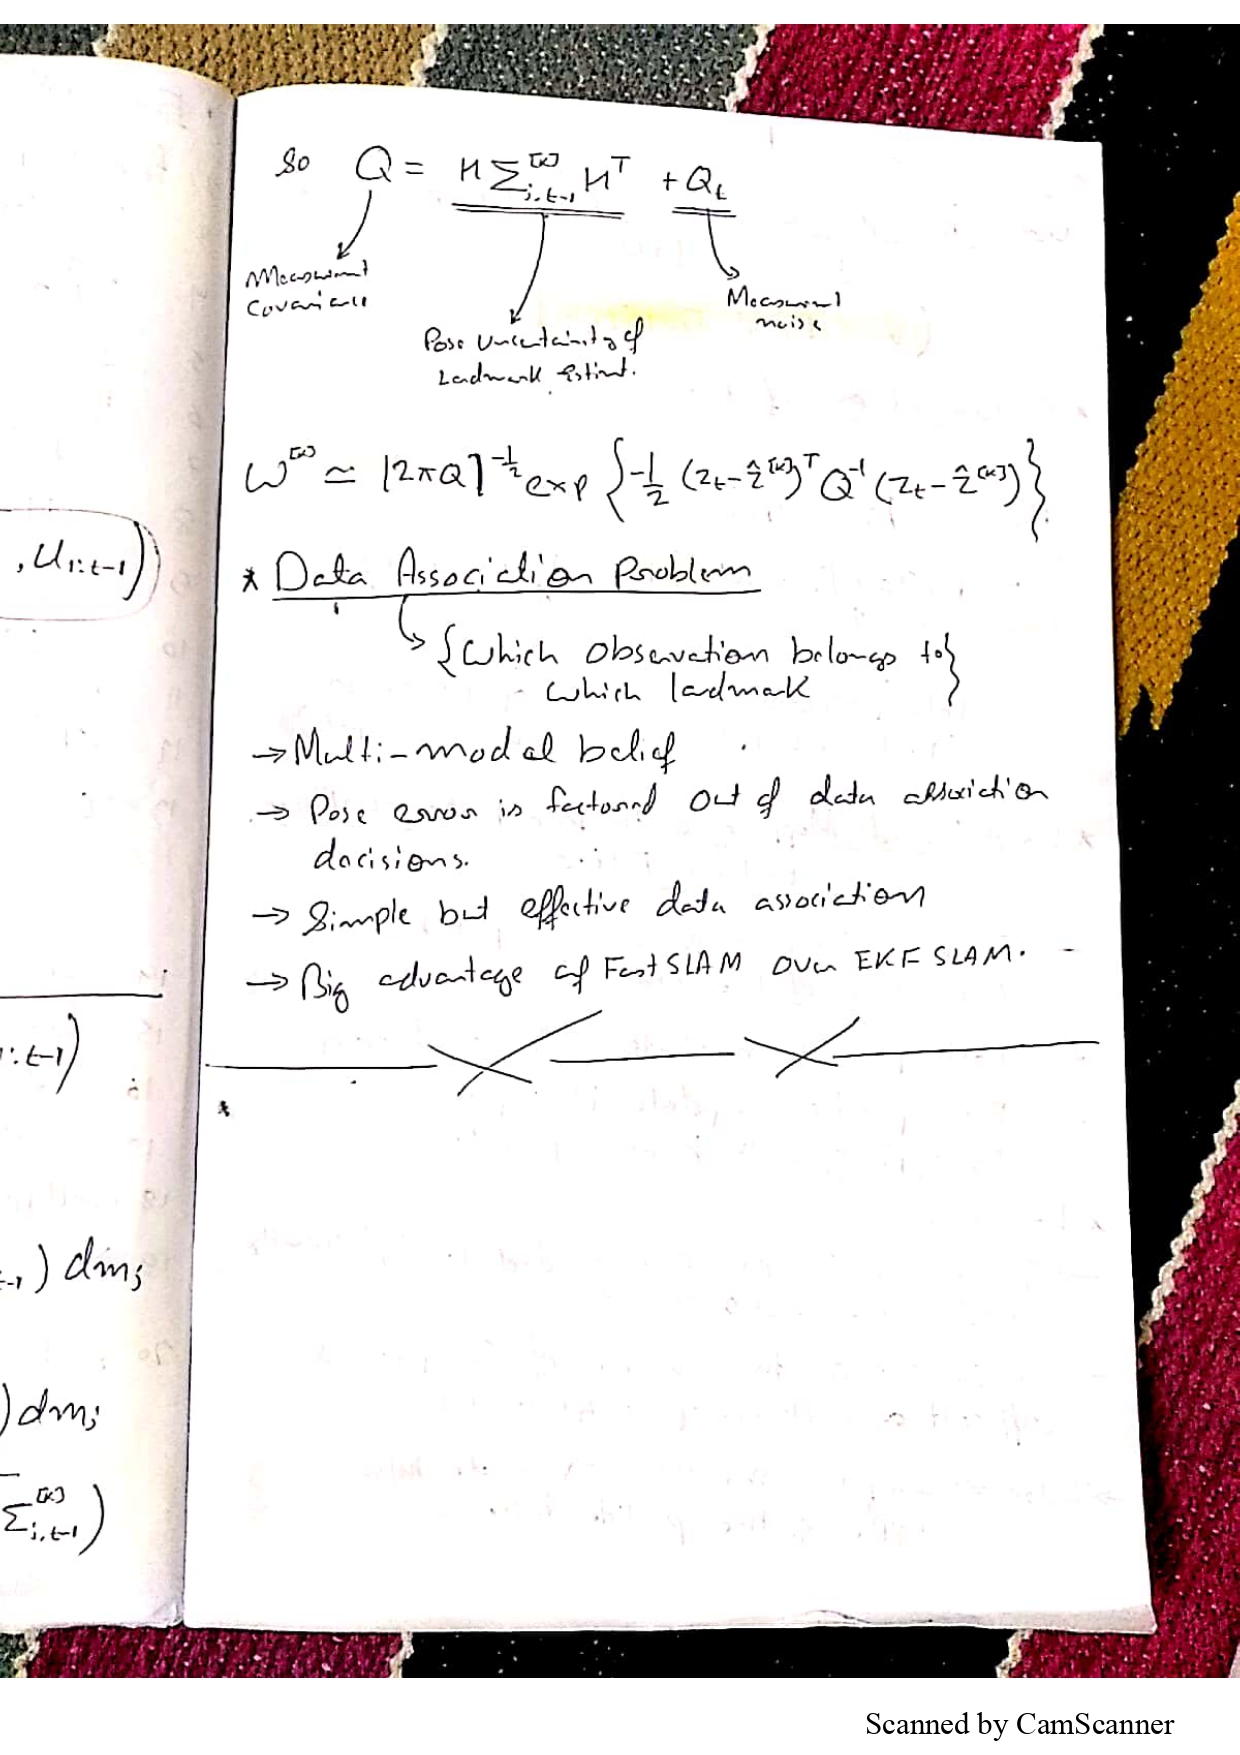 , U1:t-1)
1:t-1)
t-1) dmj
) dmj
Σ[k]j,t-1)
So Q = H Σ[k]j,t-1 H^T + Qt
Measurement
Covariance
Measurement
noise
Pose Uncertainity of
Landmark Estimt.
W[k] ≃ |2πQ|^-1/2 exp {-1/2 (Zt - Ẑ[k])^T Q^-1 (Zt - Ẑ[k])}
* Data Association Problem
{Which Observation belongs to}
which landmark
→ Multi-modal belief
→ Pose error is factored out of data association
decisions.
→ Simple but effective data association
→ Big advantage of FastSLAM Over EKF SLAM.
*
Scanned by CamScanner